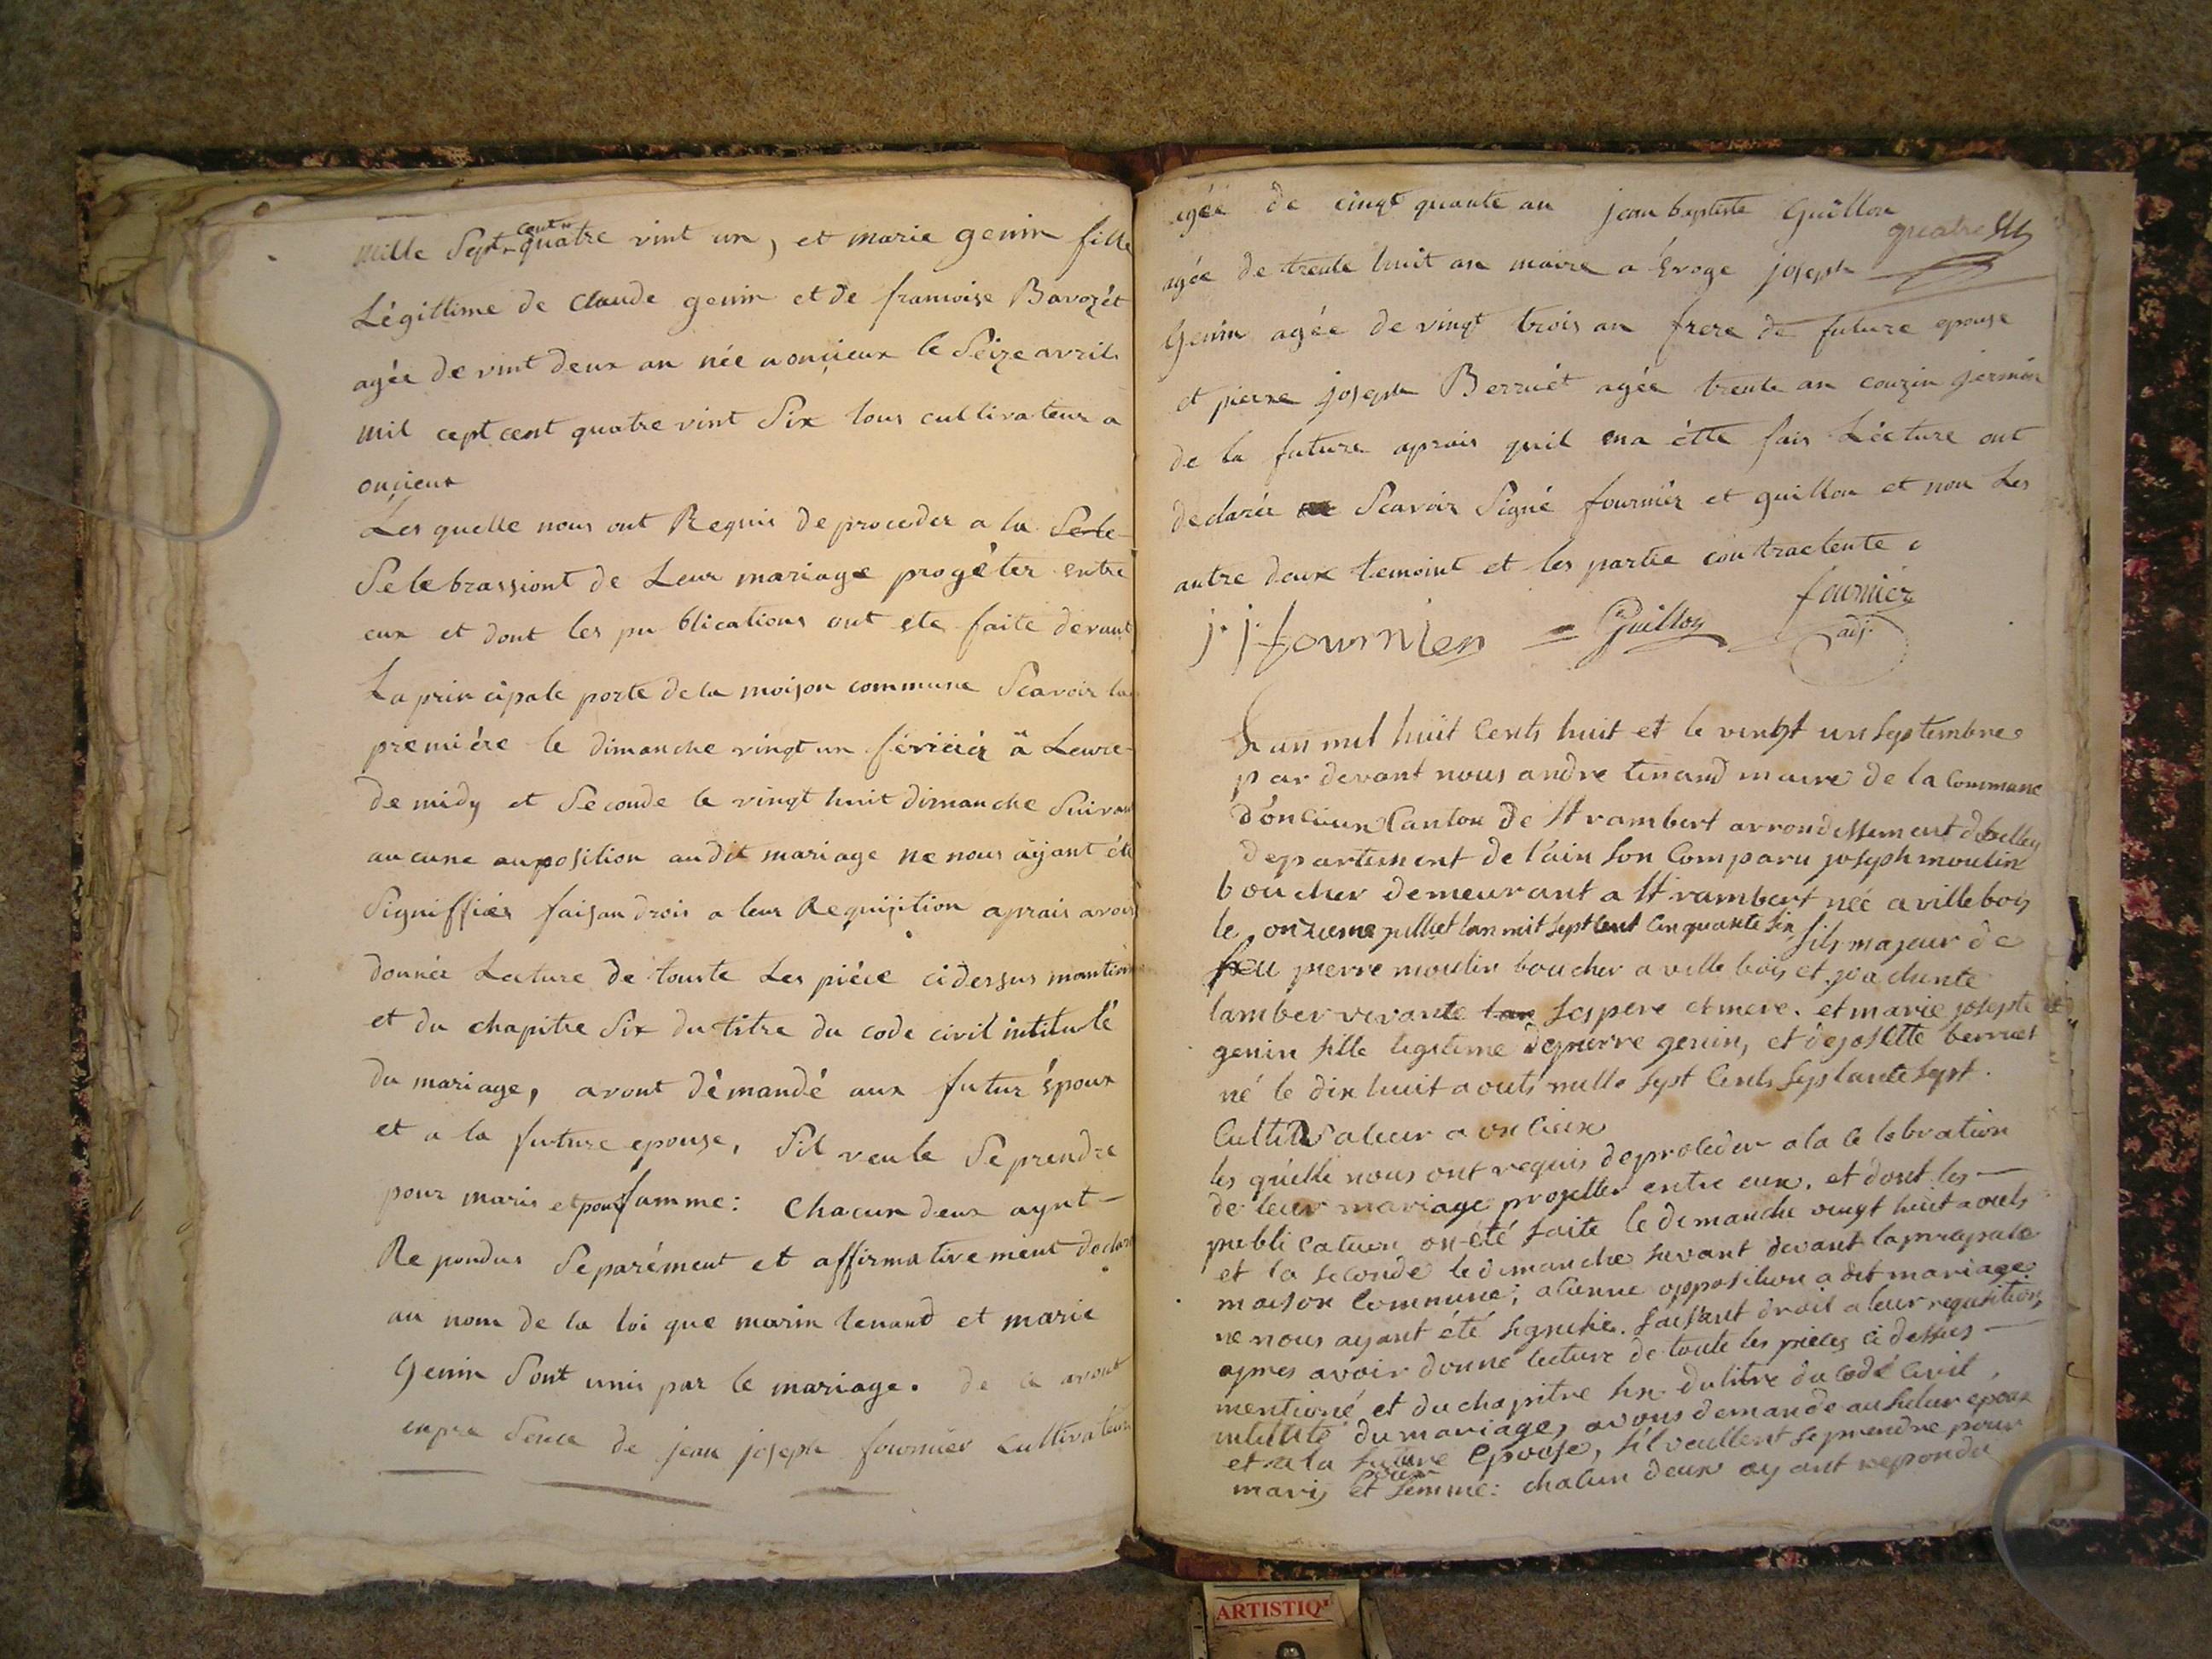 mille Sept cent quatre vint un, et marie genin fille
Légittime de Claude genin et de framoise Bavozét
agée de vint deux an née a onçieux le Seize avril
mil cept cent quatre vint Six tous cultivateur a
onçieux
Les quelle nous ont Requis de proceder a la Sele
Selebrassiont de Leur mariage progéter entre
eux et dont les publications ont ete faite devant
La principale porte de la moison commune Scavoir la
premiére le dimanche vingt un févriér à Leure
de midy et Seconde le vingt huit dimanche Suivant
aucune auposition audit mariage ne nous áÿant été
Signiffiér faisan drois a leur Requisition aprais avoir
donnée Lecture de touste Les piéce cidessus mantion
et du chapitre Six du titre du code civil intitulé
du mariage, avont démandé aux futur époux
et a la future epouse, Sil veule Se prendre
pour maris et pour famme: Chacun deux aynt
Repondus Séparément et affirmativement declar
au nom de la loi que marin tenand et marie
Genin Sont unis par le mariage. de ce avont
enpre Sence de jean joseph fournier Cultivateur
agée de cinqt quante an jean baptiste Guillon
quatre
agée de trente huit an maire a Evoge joseph
Genin agée de vingt trois an frere de future epouse
et pierre joseph Berruét agée trente an couzin jermin
de la future aprais quil ena étte fais Lécture ont
declarée Scavoir Signé fourniér et guillon et non Les
autre deux temoint et les partie contractente
j. j. fournier Guillon fournier
adj.
Lan mil huit Cents huit et le vingt un Septembre
par devant nous andre tenand maire de la Commune
d'oncieux Canton de St rambert arrondissement de belley
departement de l'ain Son Comparu joseph moulin
boucher demeurant a St rambert néé a villebois
le onzieme juillet lan mil Sept Cent Cinquante Six fils majeur de
feu pierre moulin boucher a ville bois et
lamber vivante Ses pere et mere. et marie josepte
genin fille legitime de pierre genin, et de josette berruet
né le dix huit aouts mille Sept Cents Septante Sept.
Cultivateur a oncieux
les quélle nous ont requis de proceder a la celebration
de leur mariage projetter entre eux. et dont les
publication on été faite le dimanche vingt huit aouts
et la Seconde le dimanche Suivant devant la
maison Commune; aucune opposition a dit mariage
ne nous ayant été Signifié. faisant droit a leur requisition
apres avoir donné lecture de toute les pieces ci dessus
mentioné et du chapitre Six du titre du Codé Civil
intitulé du mariage, avons demandé au futur epoux
et a la future Epouse, S'il veullent Se prendre pour
maris et pour femme: chacun deux ayant repondu
ARTISTIQ